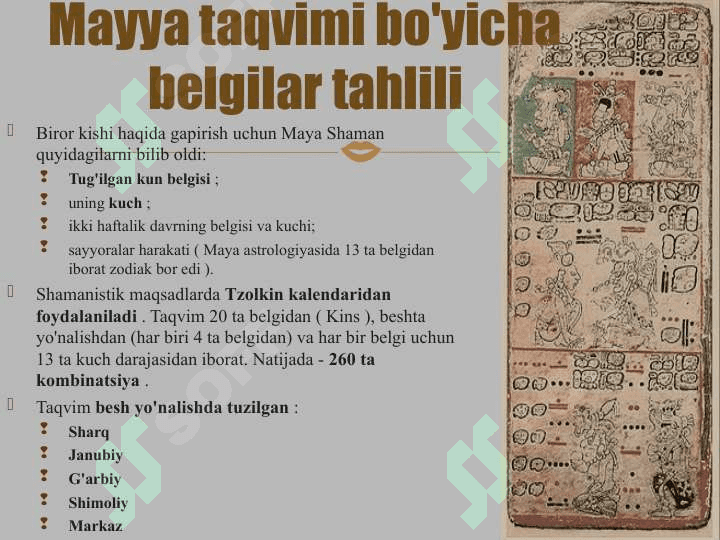 Mayya taqvimi bo'yicha
belgilar tahlili
Biror kishi haqida gapirish uchun Maya Shaman
quyidagilarni bilib oldi:
Tug'ilgan kun belgisi ;
uning kuch ;
ikki haftalik davrning belgisi va kuchi;
sayyoralar harakati ( Maya astrologiyasida 13 ta belgidan
iborat zodiak bor edi ).
Shamanistik maqsadlarda Tzolkin kalendaridan
foydalaniladi . Taqvim 20 ta belgidan ( Kins ), beshta
yo'nalishdan (har biri 4 ta belgidan) va har bir belgi uchun
13 ta kuch darajasidan iborat. Natijada - 260 ta
kombinatsiya .
Taqvim besh yo'nalishda tuzilgan :
Sharq
Janubiy
G'arbiy
Shimoliy
Markaz